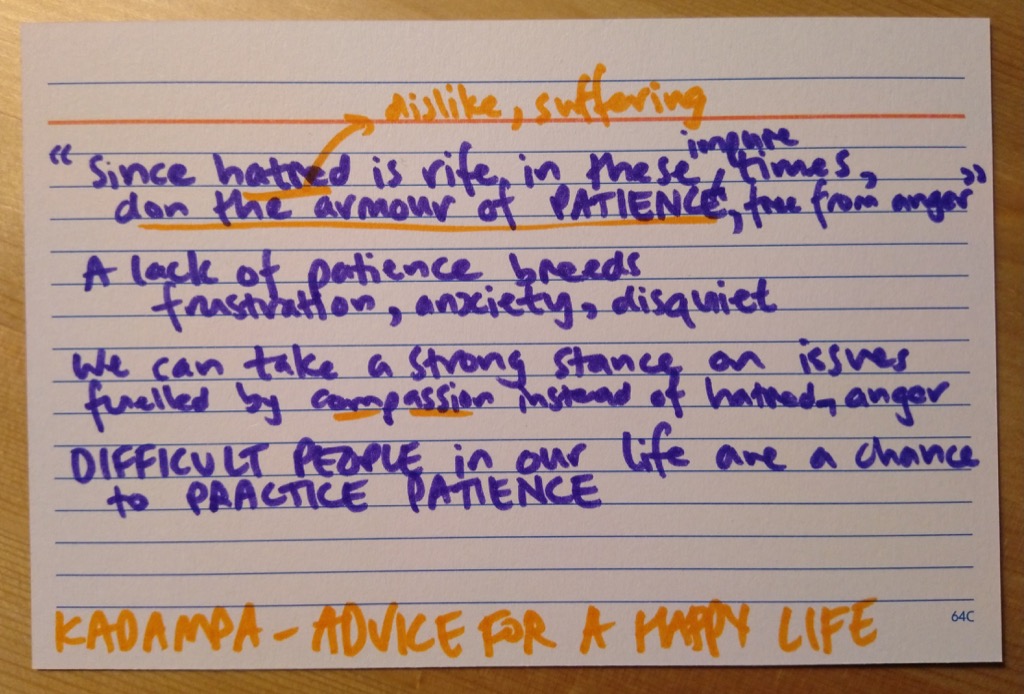 dislike, suffering
impure
"Since hatred is rife, in these times,
don the armour of PATIENCE, free from anger"
A lack of patience breeds
frustration, anxiety, disquiet
We can take a strong stance on issues
fuelled by compassion instead of hatred, anger
DIFFICULT PEOPLE in our life are a chance
to PRACTICE PATIENCE
64C
KADAMPA - ADVICE FOR A HAPPY LIFE